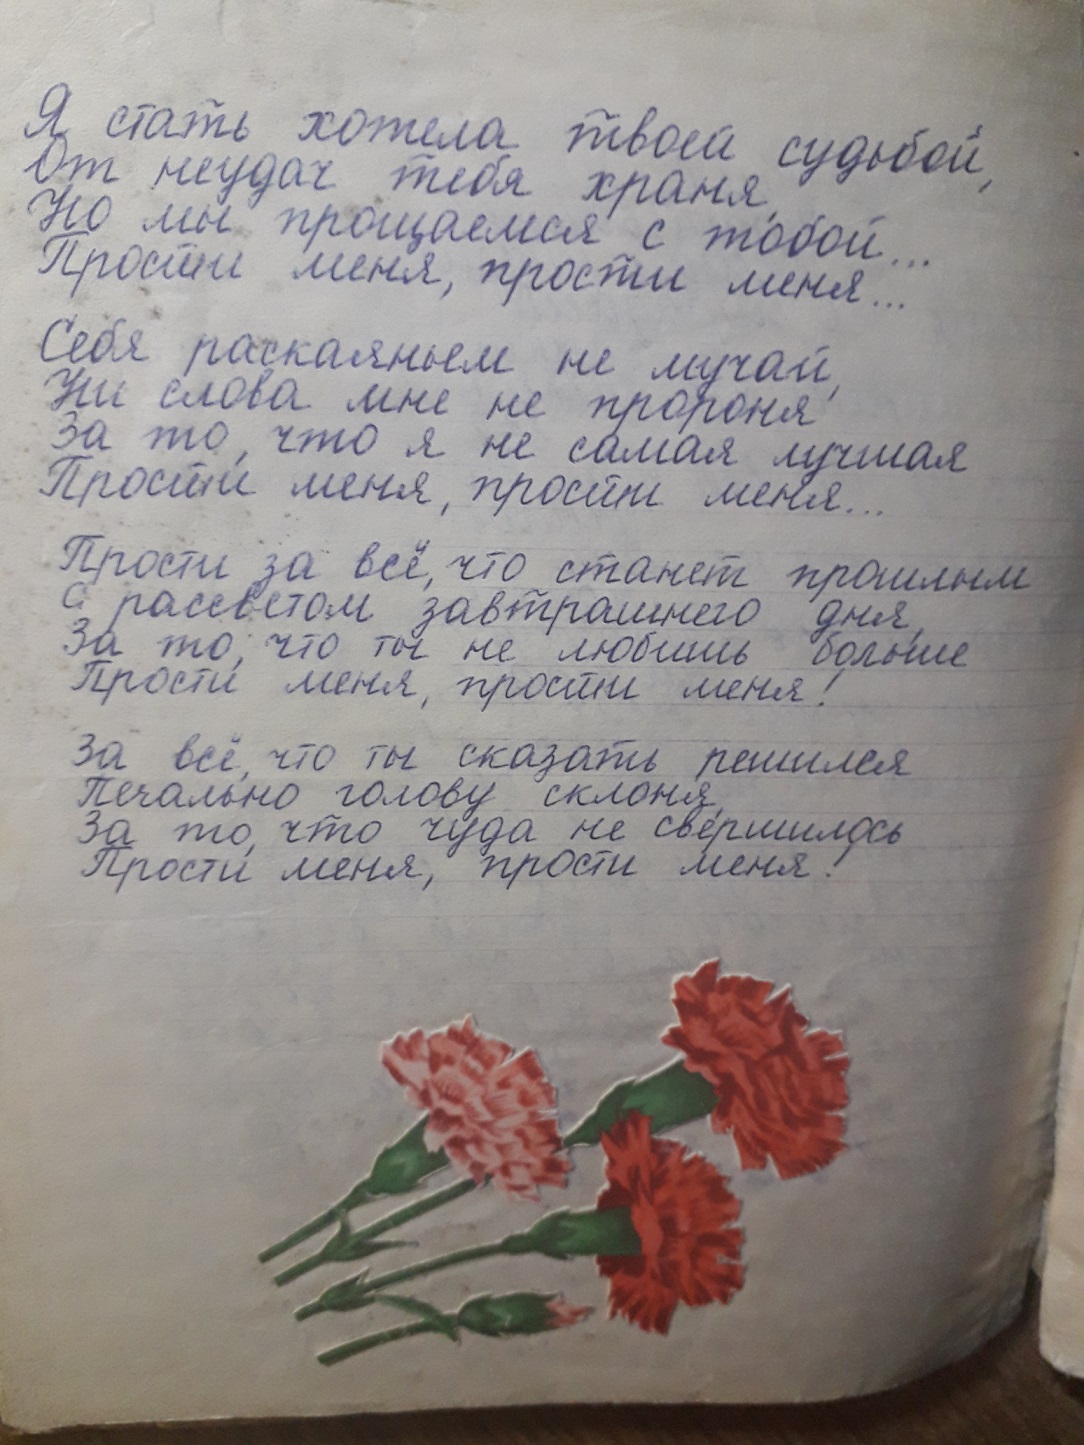 Я стать хотела твоей судьбой,
От неудач тебя храня,
Но мы прощаемся с тобой...
Прости меня, прости меня...
Себя раскаяньем не мучай,
Ни слова мне не пророня,
За то, что я не самая лучшая
Прости меня, прости меня...
Прости за всё, что станет прошлым
С рассветом завтрашнего дня,
За то, что ты не любишь больше
Прости меня, прости меня!
За всё, что ты сказать решился
Печально голову склоня,
За то, что чуда не свершилось
Прости меня, прости меня!